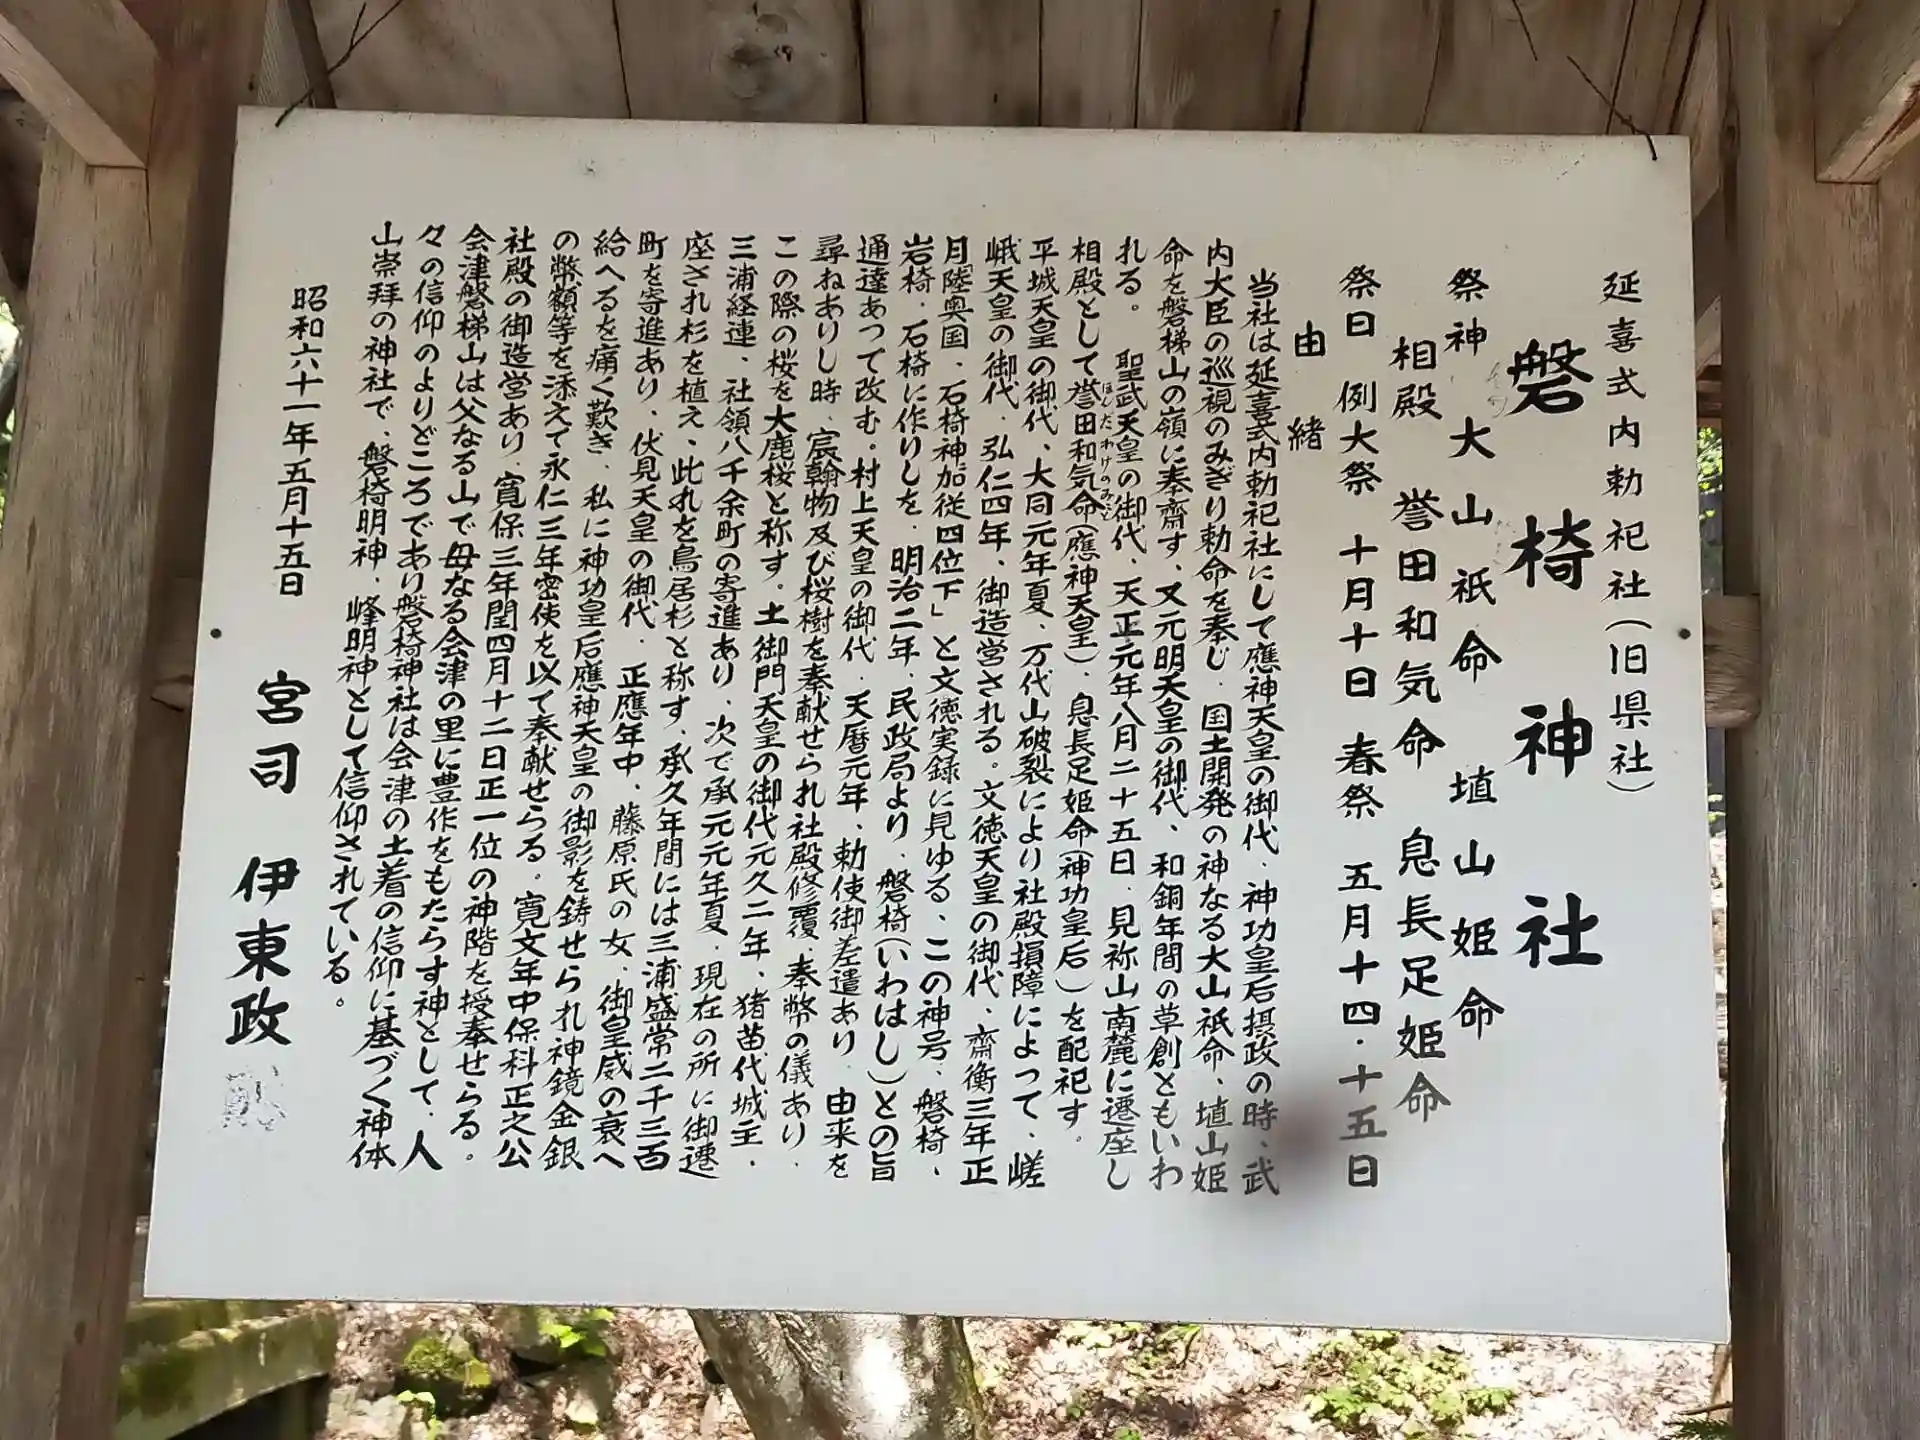 延喜式内勅祀社(旧県社)
磐椅神社
祭神 大山祇命 埴山姫命
相殿 誉田和気命 息長足姫命
祭日 例大祭 十月十日 春祭 五月十四・十五日
由緒
当社は延喜式内勅祀社にして應神天皇の御代、神功皇后摂政の時、武
内大臣の巡視のみぎり勅命を奉じ、国土開発の神なる大山祇命、埴山姫
命を磐梯山の嶺に奉齋す、又元明天皇の御代、和銅年間の草創ともいわ
れる。聖武天皇の御代、天正元年八月二十五日、見祢山南麓に遷座し
相殿として誉田和気命(應神天皇)、息長足姫命(神功皇后)を配祀す。
ほんだわけのみこと
平城天皇の御代、大同元年夏、万代山破裂により社殿損障によって、嵯
峨天皇の御代、弘仁四年、御造営される。文徳天皇の御代、齋衡三年正
月「陸奥国、石椅神加従四位下」と文徳実録に見ゆる、この神号、磐椅、
岩椅、石椅に作りしを、明治二年、民政局より、磐椅(いわはし)との旨
通達あって改む。村上天皇の御代、天暦元年、勅使御差遣あり、由来を
尋ねありし時、宸翰物及び桜樹を奉献せられ社殿修覆、奉幣の儀あり、
この際の桜を大鹿桜と称す。土御門天皇の御代元久二年、猪苗代城主、
三浦経連、社領八千余町の寄進あり、次で承元元年夏、現在の所に御遷
座され杉を植え、此れを鳥居杉と称す、承久年間には三浦盛常二千三百
町を寄進あり、伏見天皇の御代、正應年中、藤原氏の女、御皇威の衰へ
給へるを痛く歎き、私に神功皇后應神天皇の御影を鋳せられ神鏡金銀
の幣額等を添えて永仁三年密使を以て奉献せらる。寛文年中保科正之公
社殿の御造営あり、寛保三年閏四月十二日正一位の神階を授奉せらる。
会津磐梯山は父なる山で母なる会津の里に豊作をもたらす神として、人
々の信仰のよりどころであり磐椅神社は会津の土着の信仰に基づく神体
山崇拝の神社で、磐椅明神、峰明神として信仰されている。
昭和六十一年五月十五日 宮司 伊東政